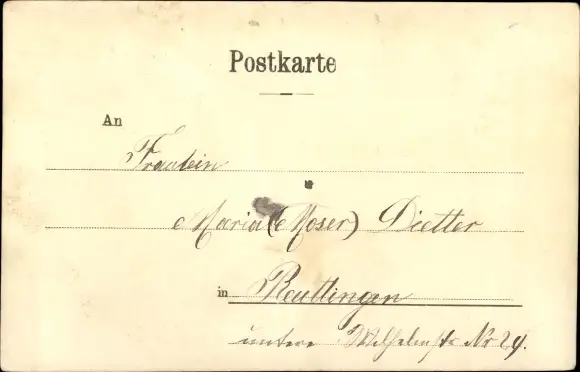 Postkarte
An
Fraulein
Maria (Moser) Dietter
in Reutlingen
untere Wilhelmstr Nr 29.